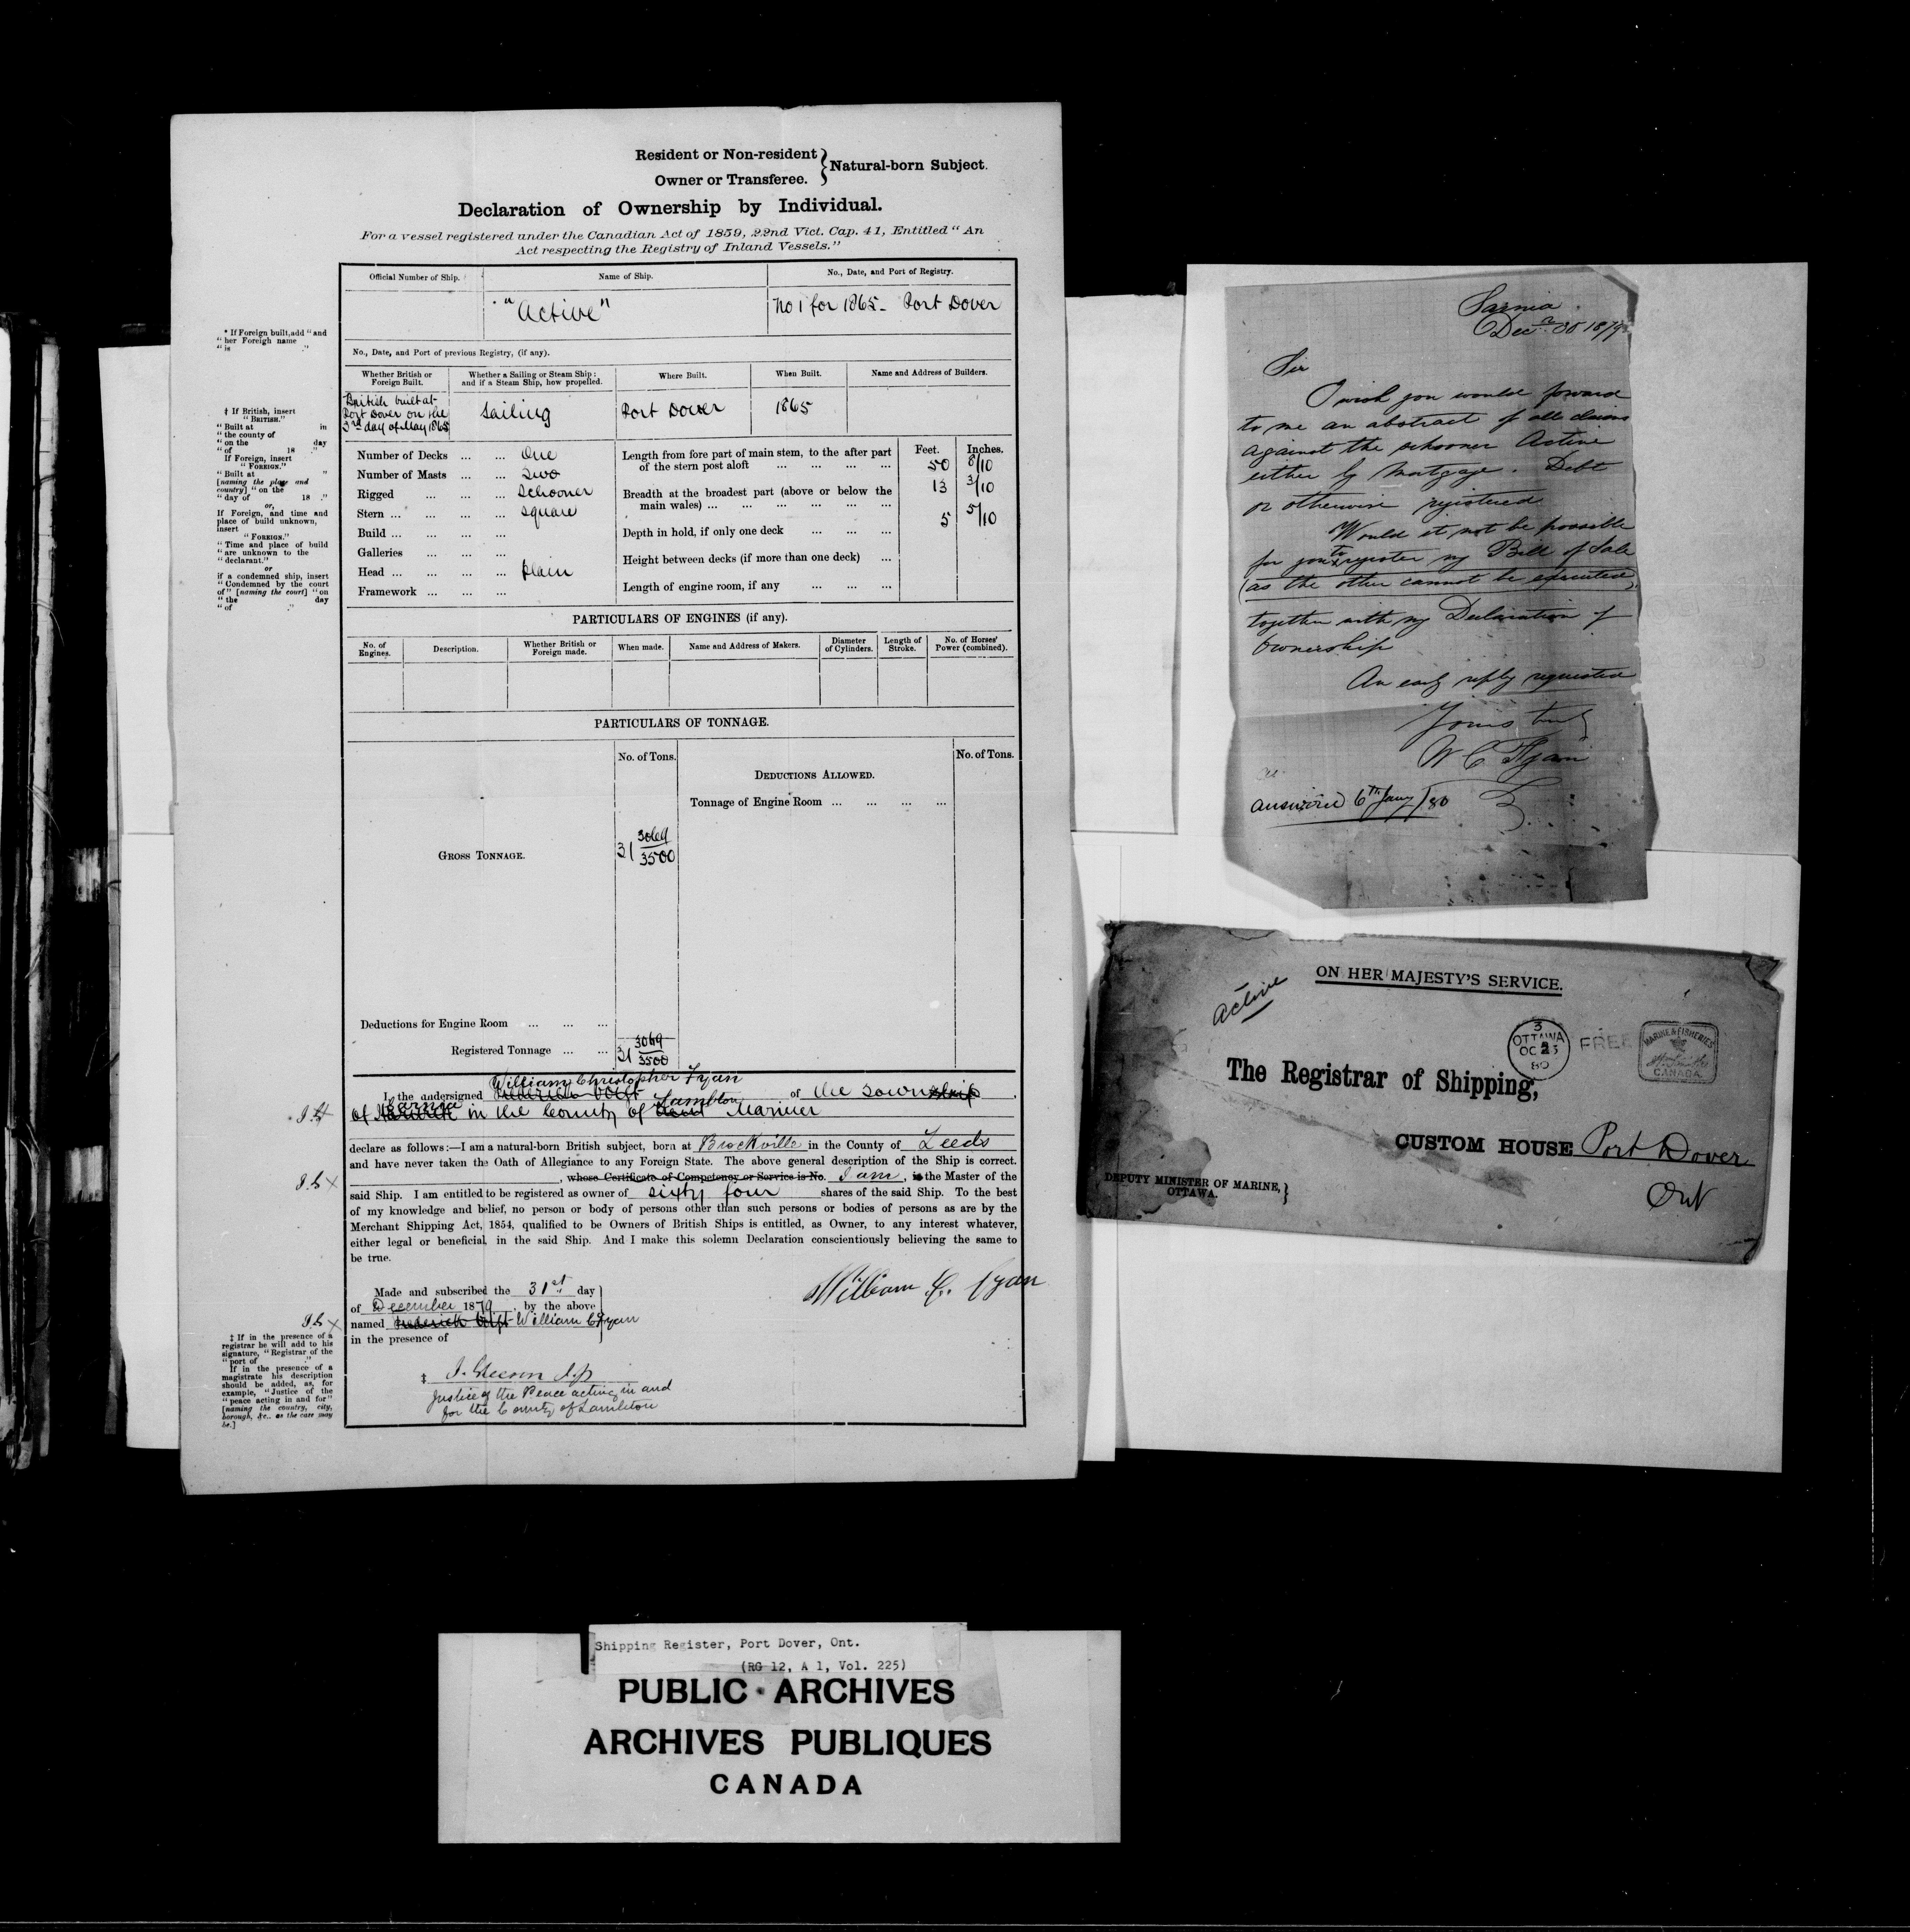 Resident or Non-resident
Owner or Transferee. } Natural-born Subject.
Declaration of Ownership by Individual.
For a vessel registered under the Canadian Act of 1859, 22nd Vict. Cap. 41, Entitled "An
Act respecting the Registry of Inland Vessels."
Official Number of Ship. Name of Ship. No., Date, and Port of Registry.
"Active" No 1 for 1865 - Port Dover
No., Date, and Port of previous Registry, (if any).
Whether British or Foreign Built. Whether a Sailing or Steam Ship: and if a Steam Ship, how propelled. Where Built. When Built. Name and Address of Builders.
British built at
Port Dover on the
3rd day of May 1865
Sailing Port Dover 1865
Number of Decks ... ... One
Number of Masts ... ... Two
Rigged ... ... ... Schooner
Stern ... ... ... ... Square
Build ... ... ... ...
Galleries ... ... ...
Head ... ... ... ... plain
Framework ... ... ...
Feet. Inches.
Length from fore part of main stem, to the after part
of the stern post aloft ... ... ... ... 50 8/10
Breadth at the broadest part (above or below the
main wales) ... ... ... ... ... ... 13 3/10
Depth in hold, if only one deck ... ... ... 5 5/10
Height between decks (if more than one deck) ...
Length of engine room, if any ... ... ...
PARTICULARS OF ENGINES (if any).
No. of Engines. Description. Whether British or Foreign made. When made. Name and Address of Makers. Diameter of Cylinders. Length of Stroke. No. of Horses' Power (combined).
PARTICULARS OF TONNAGE.
No. of Tons. No. of Tons.
DEDUCTIONS ALLOWED.
Tonnage of Engine Room ... ... ... ...
GROSS TONNAGE. 31 3069/3500
Deductions for Engine Room ... ... ...
Registered Tonnage ... ... 31 3069/3500
William Christopher Fyan
I, the undersigned of the Township
of Sarnia in the County of Lambton Mariner
declare as follows:—I am a natural-born British subject, born at Brockville in the County of Leeds
and have never taken the Oath of Allegiance to any Foreign State. The above general description of the Ship is correct.
, whose Certificate of Competency or Service is No. I am, is the Master of the
said Ship. I am entitled to be registered as owner of sixty four shares of the said Ship. To the best
of my knowledge and belief, no person or body of persons other than such persons or bodies of persons as are by the
Merchant Shipping Act, 1854, qualified to be Owners of British Ships is entitled, as Owner, to any interest whatever,
either legal or beneficial, in the said Ship. And I make this solemn Declaration conscientiously believing the same to
be true.
Made and subscribed the 31st day
of December 1879, by the above
named William C Fyan
in the presence of
William C. Fyan
Justice of the Peace acting in and
for the County of Lambton
* If Foreign built, add "and
"her Foreign name
"is ."
† If British, insert
"BRITISH."
"Built at in
"the county of
"on the day
"of 18 ."
If Foreign, insert
"FOREIGN."
"Built at "
[naming the place and
country] "on the
"day of 18 ."
or,
If Foreign, and time and
place of build unknown,
insert
"FOREIGN."
"Time and place of build
"are unknown to the
"declarant."
or
if a condemned ship, insert
"Condemned by the court
of" [naming the court] "on
"the day
"of ."
‡ If in the presence of a
registrar he will add to his
signature, "Registrar of the
"port of ."
If in the presence of a
magistrate his description
should be added, as, for
example, "Justice of the
"peace acting in and for"
[naming the country, city,
borough, &c., as the case may
be.]
Sarnia
Dec 30 1879
Sir
I wish you would forward
to me an abstract of all claims
against the schooner Active
either by Mortgage. Debt
or otherwise registered
Would it not be possible
for you to register my Bill of Sale
(as the other cannot be executed)
together with my Declaration of
Ownership
An early reply requested
Yours truly
W C Fyan
answered 6th Jany/80
Active
ON HER MAJESTY'S SERVICE.
3
OTTAWA
OC 23
80
FREE
MARINE & FISHERIES
CANADA
The Registrar of Shipping,
CUSTOM HOUSE Port Dover
Ont
DEPUTY MINISTER OF MARINE,
OTTAWA.
Shipping Register, Port Dover, Ont.
(RG 12, A 1, Vol. 225)
PUBLIC ARCHIVES
ARCHIVES PUBLIQUES
CANADA